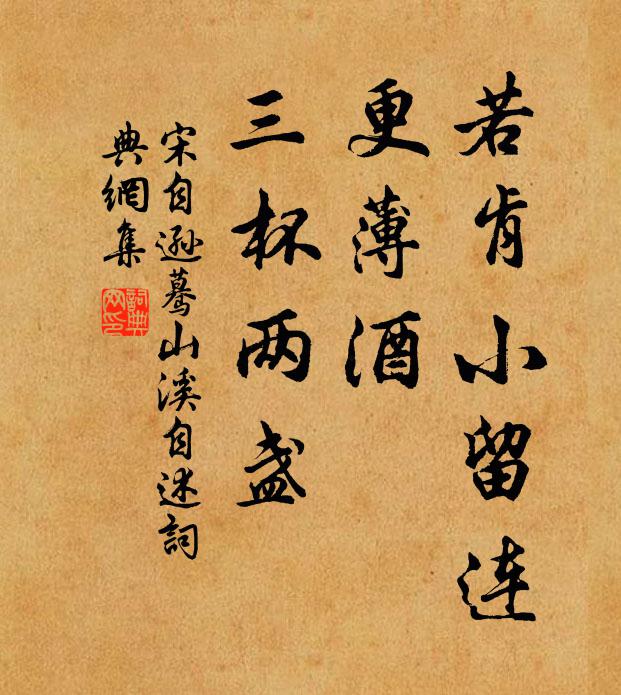 若肯小留连
更薄酒
三杯两盏
宋自逊蓦山溪自述词
典網集
詞典網印